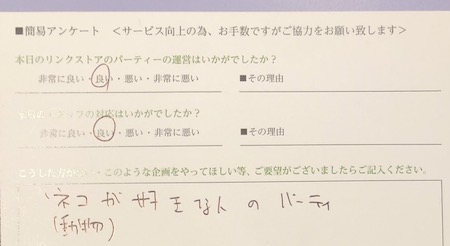 ■簡易アンケート ＜サービス向上の為、お手数ですがご協力をお願い致します＞
本日のリンクストアのパーティーの運営はいかがでしたか?
非常に良い・良い・悪い・非常に悪い ■その理由
スタッフの対応はいかがでしたか?
非常に良い・良い・悪い・非常に悪い ■その理由
・このような企画をやってほしい等、ご要望がございましたらご記入ください。
ネコが好きな人のパーティ
(動物)